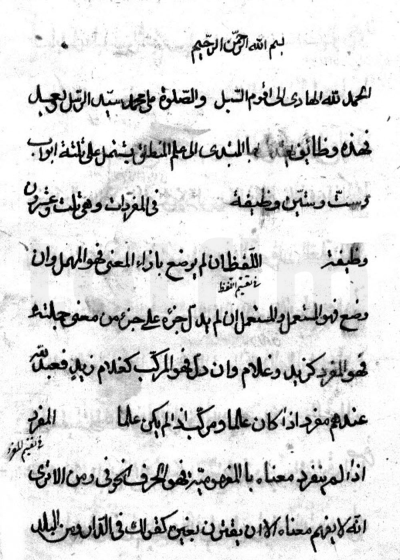 بسم الله الرحمن الرحيم
الحمد لله الهادى الى اقوم السبل والصلوة على محمد سيد الرسل وبعد
فهذه وظائف بها المبتدى الى علم المنطق يشتمل على ثلثة ابواب
وست وستين وظيفة فى المفردات وهى ثلث وعشرون
وظيفة اللفظ ان لم يوضع بازاء المعنى فهو المهمل وان
فى تقسيم اللفظ
وضع فهو المستعمل والمستعمل ان لم يدل جزءه على جزء من معنى جملته
فهو المفرد كزيد وغلام وان دل فهو المركب كغلام زيد فعبد الله
عندهم مفرد اذا كان علما ومركب اذا لم يكن علما المفرد
فى تقسيم المفرد
اذا لم ينفرد معناه بالمفهومية فهو الحرف نحو فى ومن الا ترى
انه لا يفهم معناه الا ان يقترن بغيره كقولك فى الدار ومن البلد